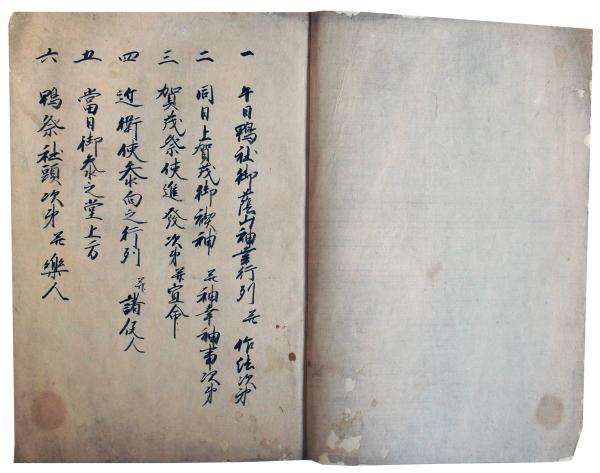 一 午日鴨社御蔭山神幸行列并作法次第
二 同日上賀茂御禊神并神幸神事次第
三 賀茂祭使進發次第并宣命
四 近衛使参向之行列并諸役人
五 當日御参之堂上方
六 鴨祭社頭次第并樂人